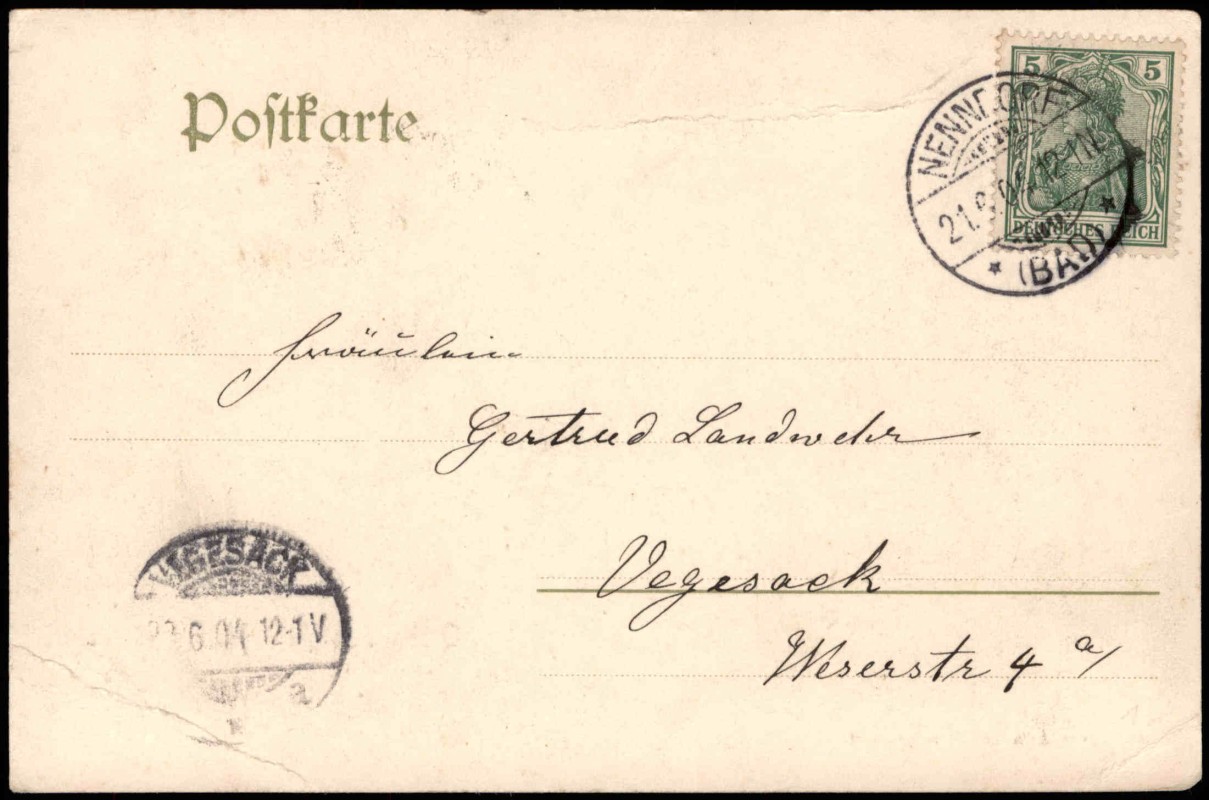 Postkarte
5 5
DEUTSCHES REICH
NENNDORF
12-1N
(BAD)
Fräulein
Gertrud Landwehr
Vegesack
Weserstr 4 a/
VEGESACK
6.04 12-1V
a